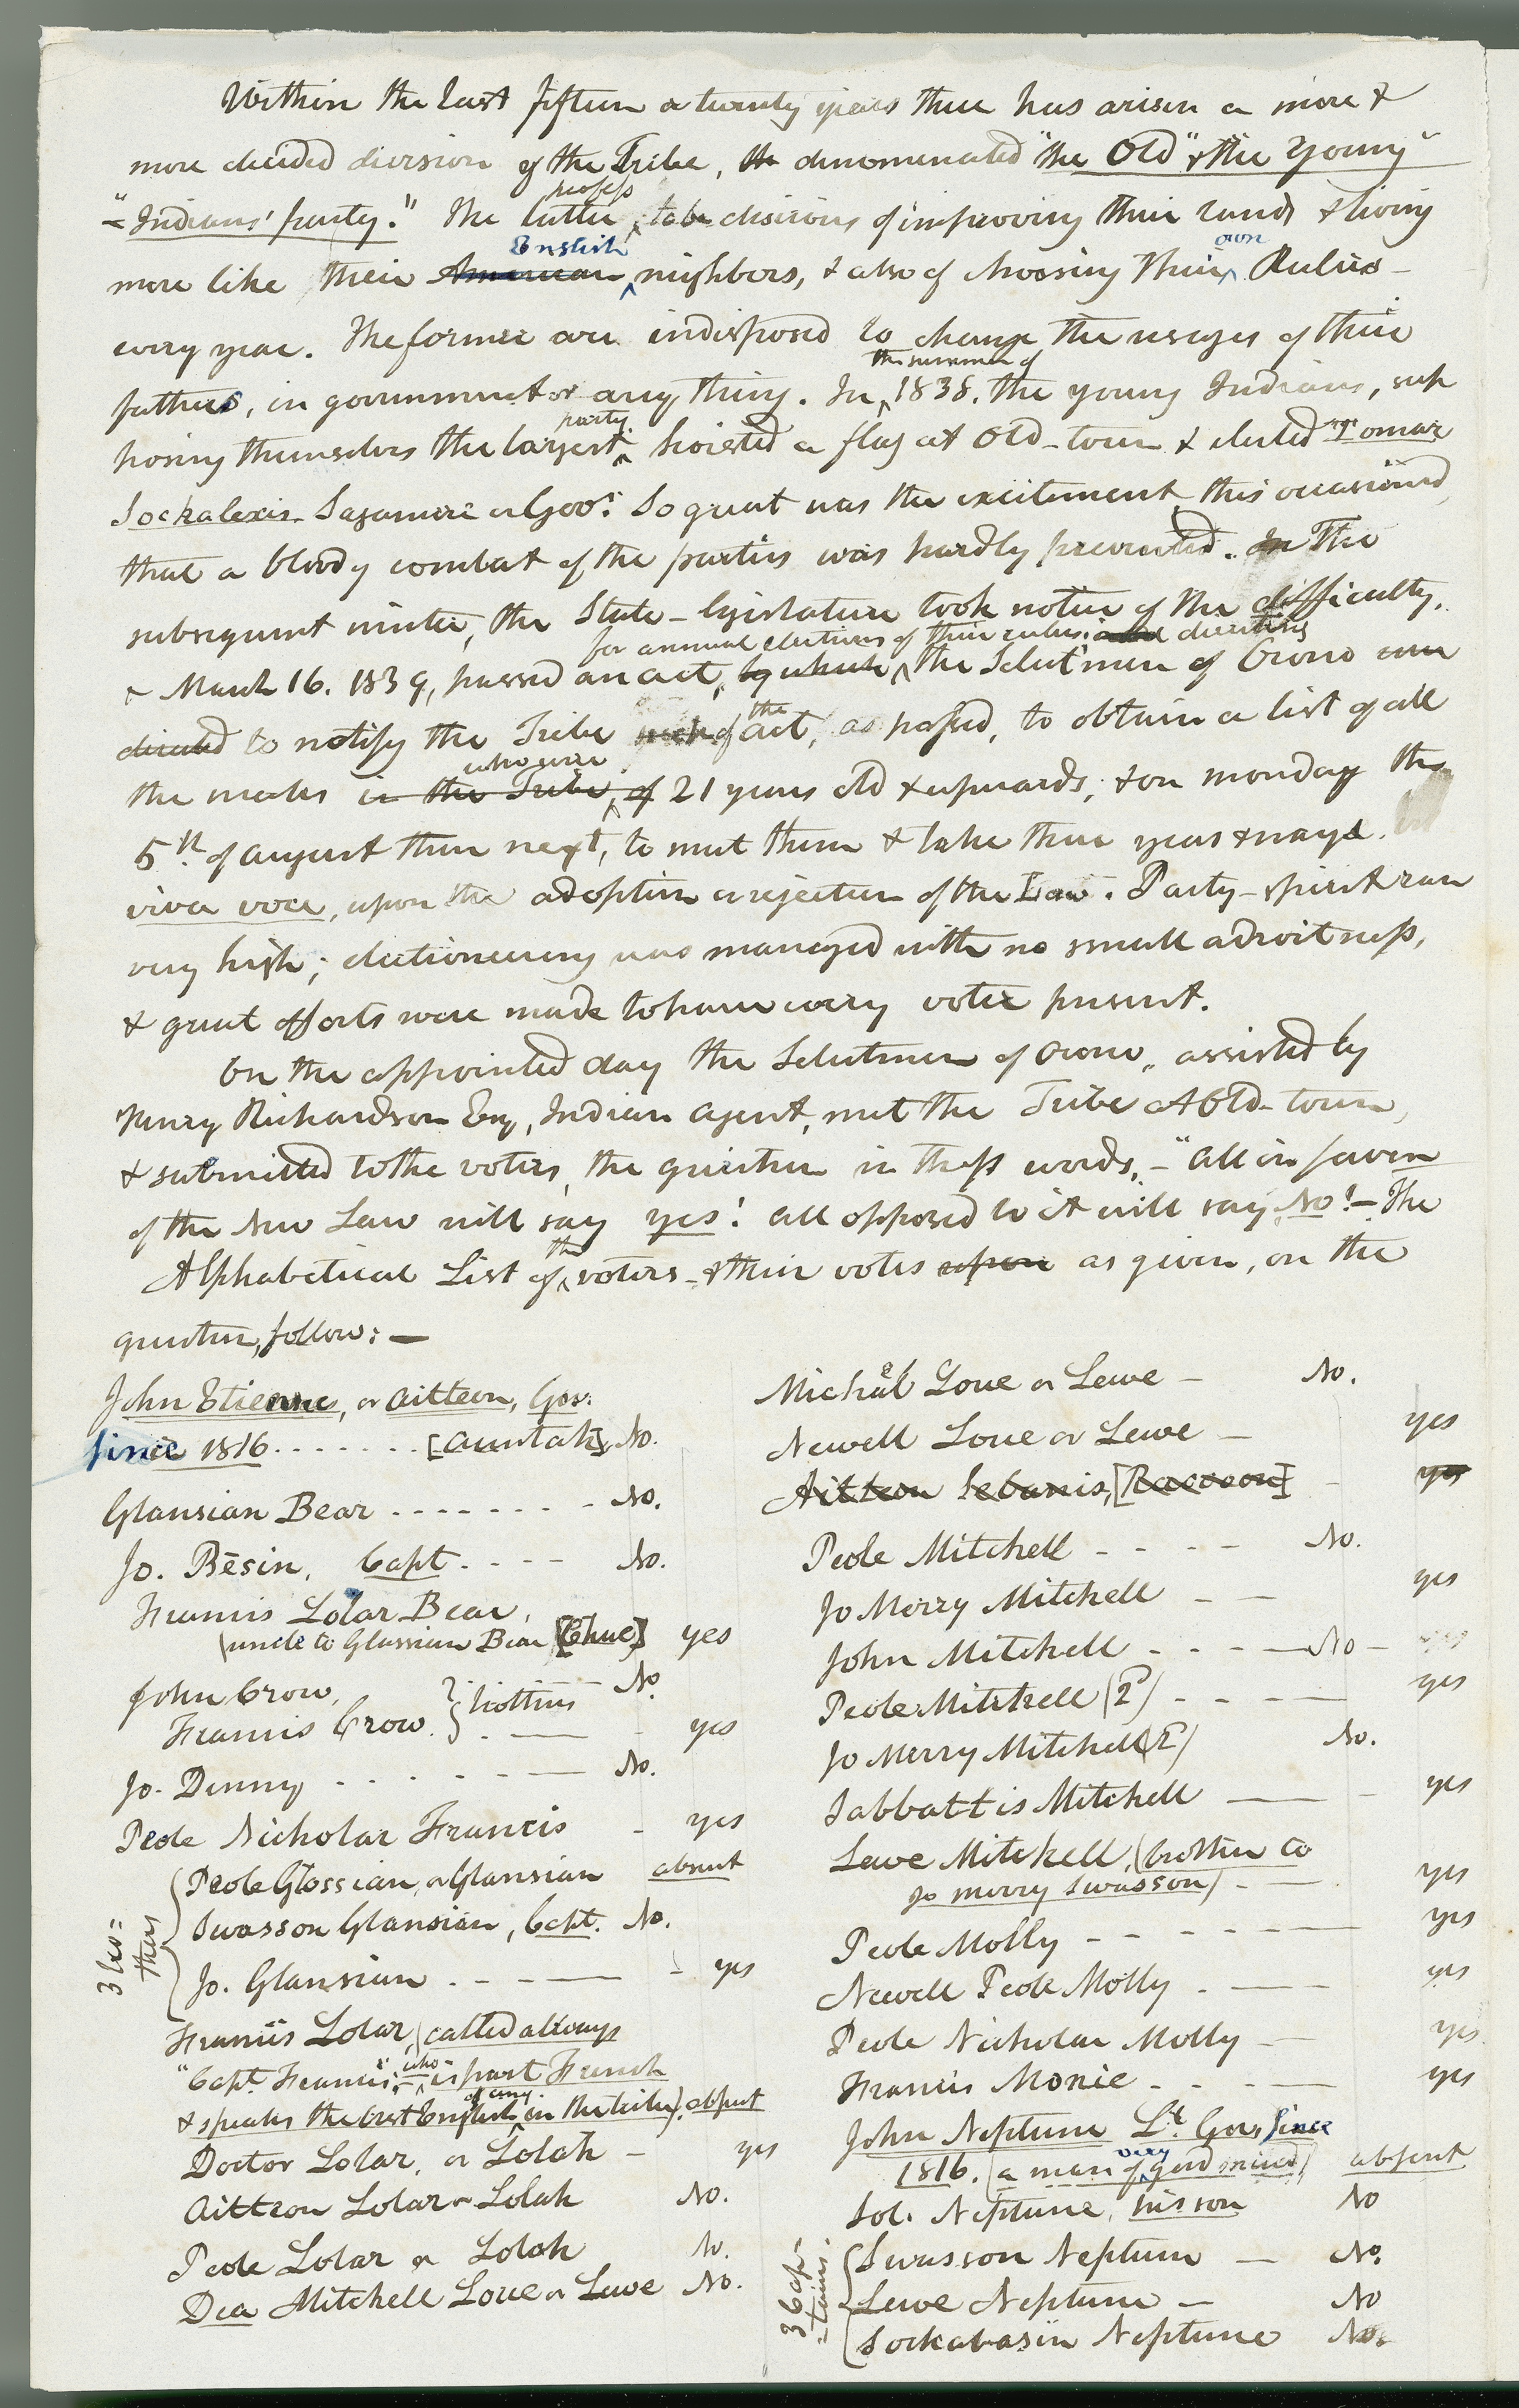 Within the last fifteen or twenty years there has arisen a more &
more decided division of the Tribe, the denomenated "the Old" & the Young"
"=Indians' party." The latter profess to be desirous of improving their lands & living
more like their American English neighbors, & also of choosing their own Rulers
every year. The former are indisposed to change the usages of their
fathers, in government or any thing. In the summer of 1838. the young Indians, sup
posing themselves the largest party hoisted a flag at Old-town & elected "Tomar
Sockalexis Sagamore or Gov.r So great was the excitement this occasioned,
that a bloody combat of the parties was hardly prevented. In The
subsequent winter, the State-legislature took notice of the difficulty,
& March 16. 1839, passed an act, by which for annual elections of their rulers: and directing the Selectmen of Orono were
directed to notify the Tribe such of the act, as passed, to obtain a list of all
the males in the Tribe, of who were 21 years old & upwards; & on monday the
5th of august then next, to meet them & take their yeas & nays
viva voce, upon the adoption or rejection of the Law. Party-spirit ran
very high; electioneering was managed with no small adroitness,
& great efforts were made to have every voter present.
On the appointed day the Selectmen of Orono, assisted by
Henry Richardson Esq, Indian agent, met the Tribe at Old-town,
& submitted to the voters, the question in these words,- "All in favor
of the New Law will say yes! all opposed to it will say No!- The
Alphabetical List of the voters & their votes upon as given, on the
question, follow:-
John Etienne, or Aitteon, Gov.
since 1816....... [Auntah] No.
Glansian Bear ....... No.
Jo. Bēsin, Capt.... No.
Francis Lolar Bear,
(uncle to Glassian Bear [Chue] yes
John Crow, } brothers No.
Francis Crow. } yes
Jo. Denny ...... No.
Peole Nicholar Francis - yes
3 bro=
thers
Peole Glossian, or Glansian absent
Swasson Glansian, Capt. No.
Jo. Glansian .... yes
Francis Lolar, (called always
"Capt. Francis": who is part French
& speaks the best English of any in the tribe). absent
Doctor Lolar, or Lolah - yes
Aitteon Lolar or Lolah No.
Peole Lolar or Lolah No.
Dea Mitchell Loue or Lewe No.
Michael Loue or Lewe - No.
Newell Loue or Lewe - yes
Aitteon Lebanis, [Raccoon] - yes
Peole Mitchell - - - - No.
Jo Merry Mitchell - - yes
John Mitchell - - - No - yes
Peole Mitchell (2d) - - - yes
Jo Merry Mitchell (2d) No.
Sabbattis Mitchell - yes
Lewe Mitchell, (brother to
Jo merry Swasson) - yes
Peole Molly - - - - yes
Newell Peole Molly - yes
Peole Nicholar Molly - yes
Francis Monie - - yes
John Neptune Lt. Gov, since
1816. (a man of very good mind) absent
Sol. Neptune, his son No
3 Cap-
=tains.
Swasson Neptune - No.
Lewe Neptune - No
Sockabasin Neptune No.